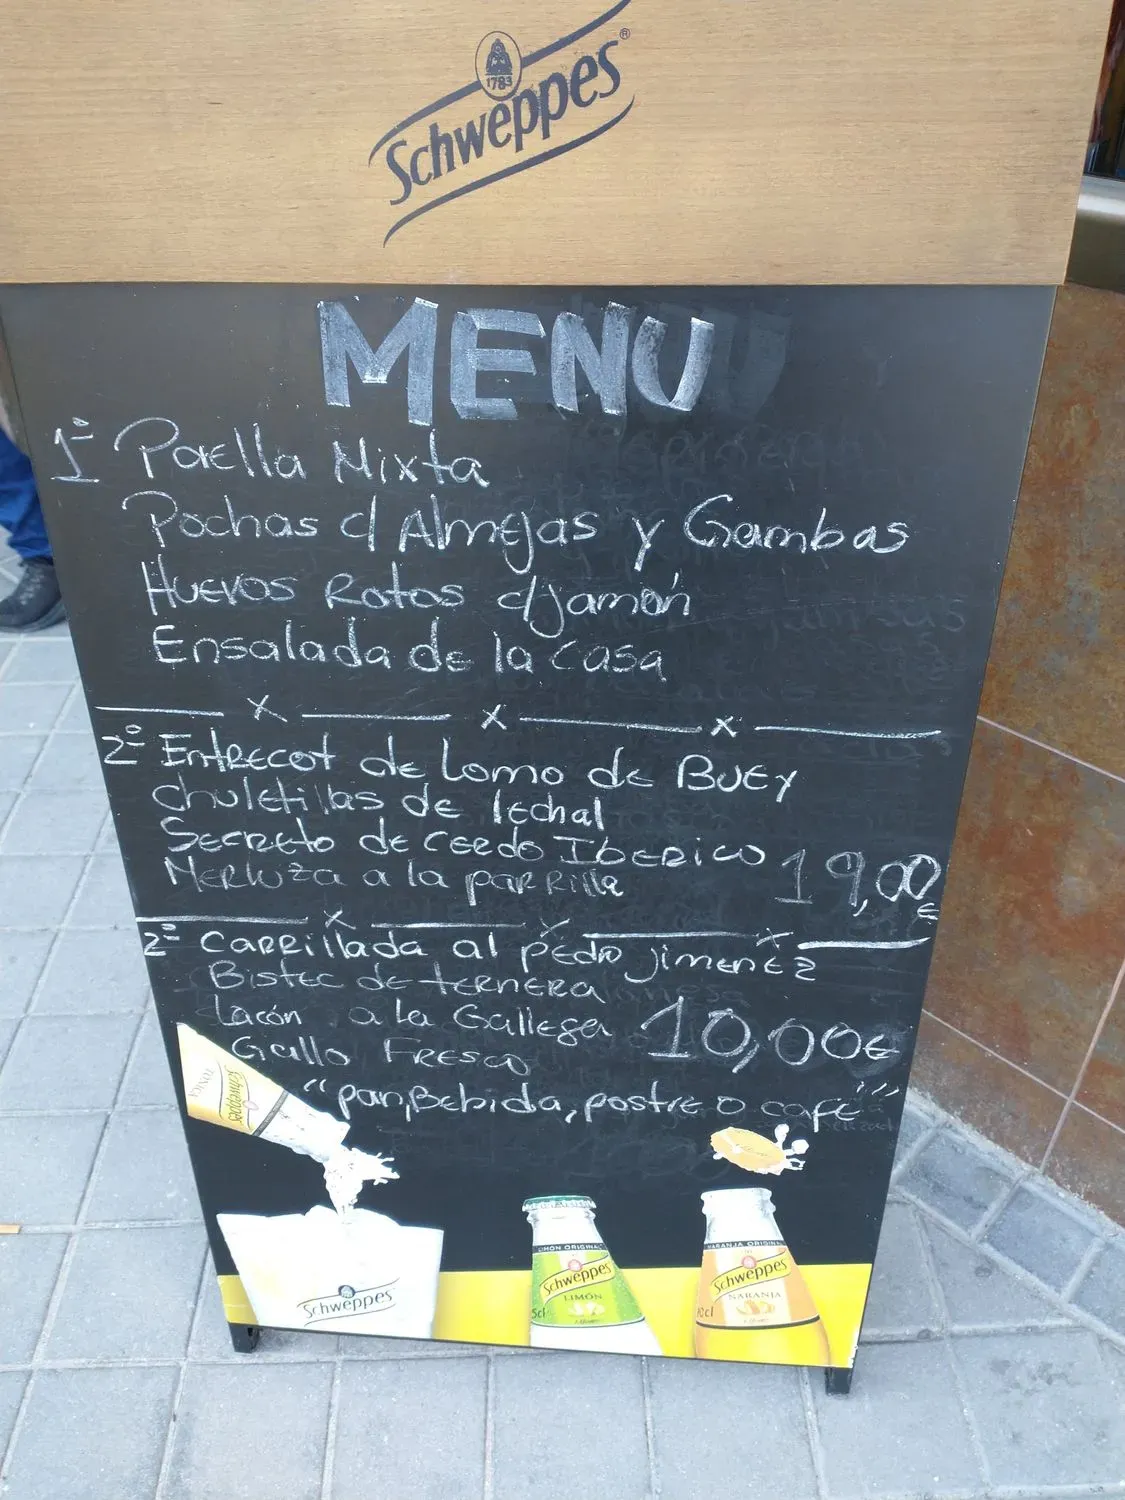 1783
Schweppes®
MENU
1º Paella Mixta
Pochas c/ Almejas y Gambas
Huevos Rotos c/jamón
Ensalada de la casa
x x x
2º Entrecot de Lomo de Buey
chuletillas de lechal
Secreto de Cerdo Iberico
Merluza a la parrilla 19,00€
x x x
2º Carrillada al pedro jimenez
Bistec de ternera
Lacón a la Gallega 10,00€
Gallo Fresco
"pan, Bebida, postre o café"
TONICA
Schweppes
Schweppes
LIMÓN ORIGINAL
Schweppes
LIMÓN
NARANJA ORIGINAL
Schweppes
NARANJA